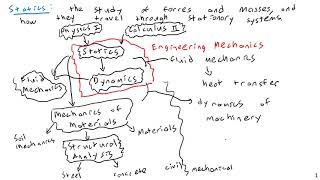 Statics: the study of forces and masses, and
how they travel through stationary systems
Physics I Calculus II
Statics
Engineering Mechanics
Dynamics
Fluid Mechanics
fluid mechanics
heat transfer
dynamics of machinery
Mechanics of Materials
Soil mechanics
Materials
Structural Analysis
Steel concrete civil mechanical
1